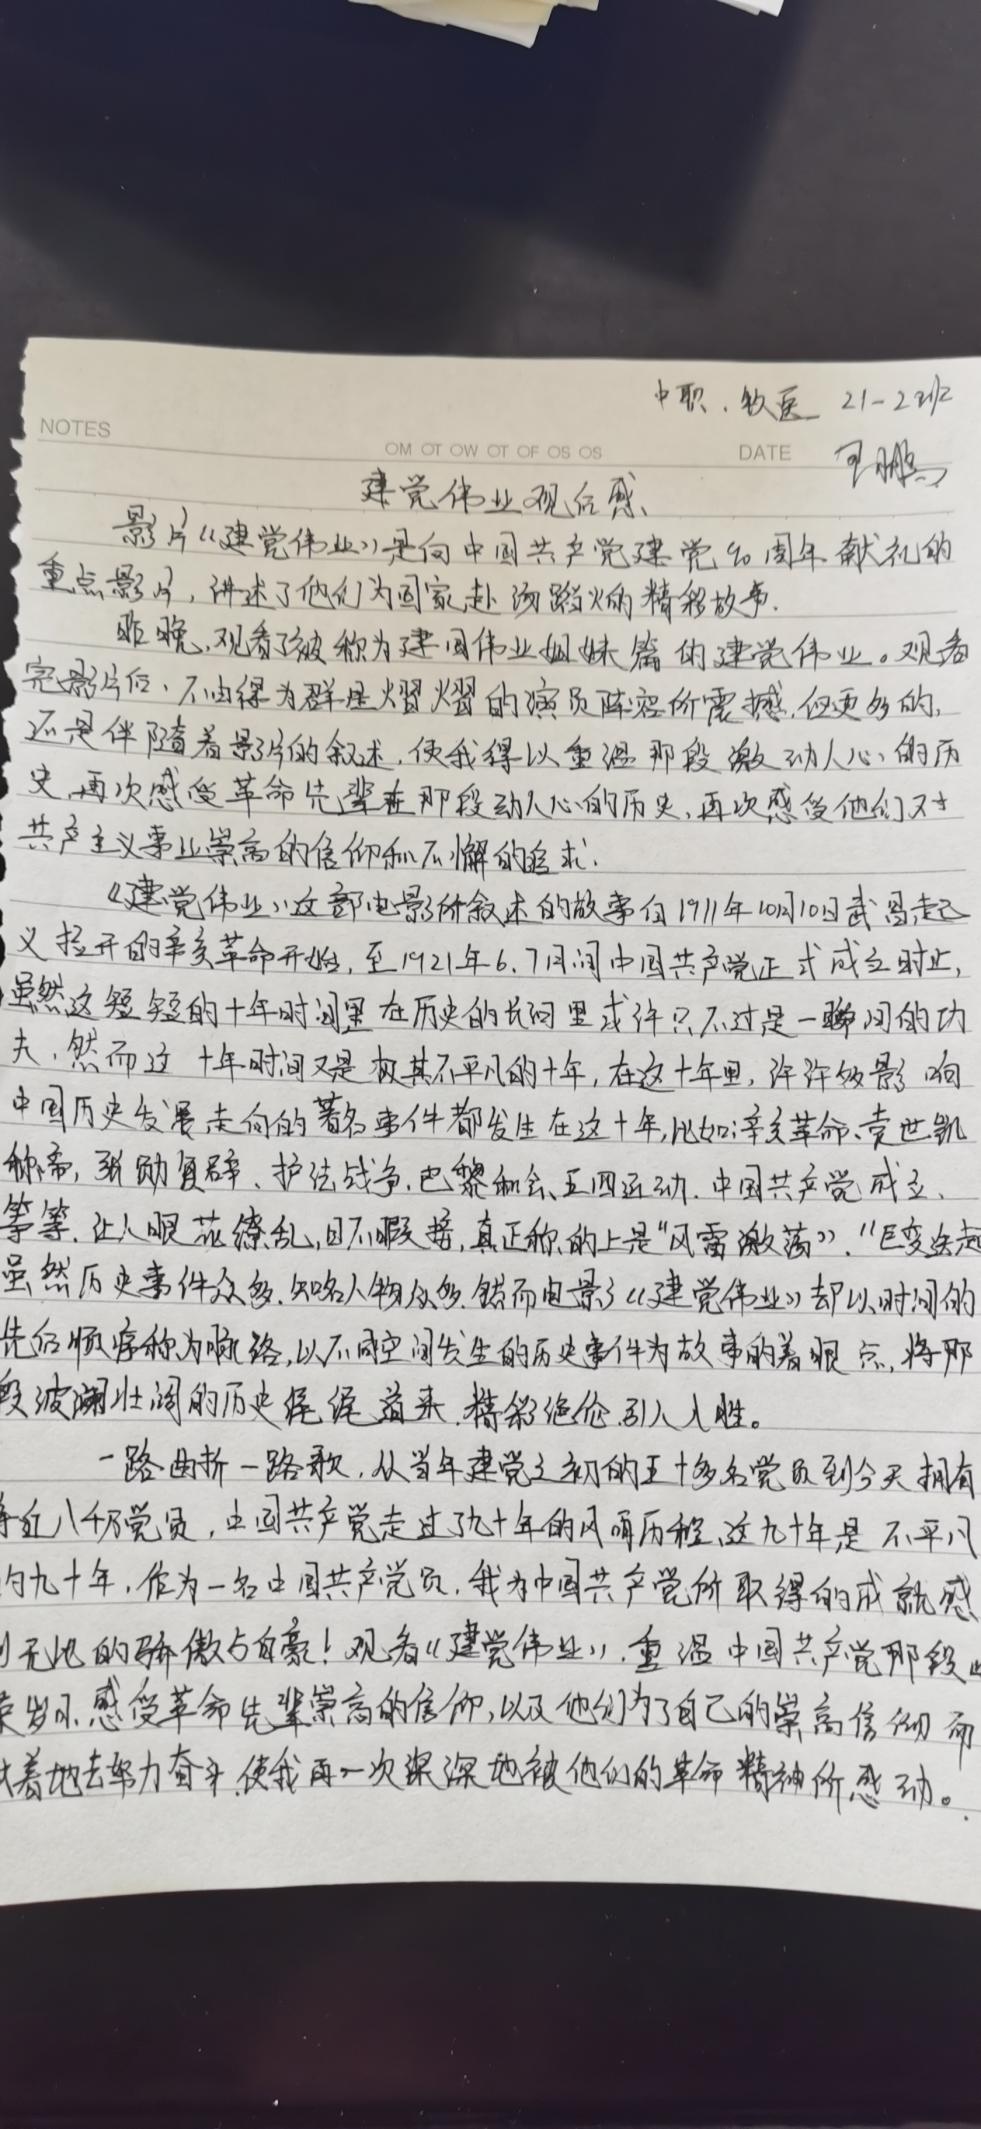 中职、牧医 21-2班
NOTES
OM OT OW OT OF OS OS
DATE
王鹏
建党伟业观后感
影片《建党伟业》是向中国共产党建党90周年献礼的
重点影片，讲述了他们为国家赴汤蹈火的精彩故事.
昨晚,观看了被称为建国伟业姐妹篇的建党伟业。观看
完影片后，不由得为群星熠熠的演员阵容所震撼,但更多的,
还是伴随着影片的叙述,使我得以重温那段激动人心的历
史,再次感受革命先辈在那段动人心的历史,再次感受他们对
共产主义事业崇高的信仰和不懈的追求.
《建党伟业》这部电影所叙述的故事自1911年10月10日武昌起
义拉开的辛亥革命开始，至1921年6、7月间中国共产党正式成立时止,
虽然这短短的十年时间里在历史的长河里或许只不过是一瞬间的功
夫、然而这十年时间又是极其不平凡的十年,在这十年里,许许多影响
中国历史发展走向的著名事件都发生在这十年,比如:辛亥革命、袁世凯
称帝,张勋复辟、护法战争,巴黎和会、五四运动、中国共产党成立、
等等.让人眼花缭乱,目不暇接,真正称的上是“风雷激荡”、“巨变迭起
虽然历史事件众多.知名人物众多.然而电影《建党伟业》却以时间的
先后顺序称为脉络,以不同空间发生的历史事件为故事的着眼点,将那
段波澜壮阔的历史娓娓道来,精彩绝伦,引人入胜。
一路曲折一路歌,从当年建党之初的五十多名党员到今天拥有
将近八千万党员,中国共产党走过了九十年的风雨历程,这九十年是不平凡
的九十年,作为一名中国共产党员,我为中国共产党所取得的成就感
到无比的骄傲与自豪!观看《建党伟业》,重温中国共产党那段
荣岁月,感受革命先辈崇高的信仰,以及他们为了自己的崇高信仰而
执着地去努力奋斗,使我再一次深深地被他们的革命精神所感动。